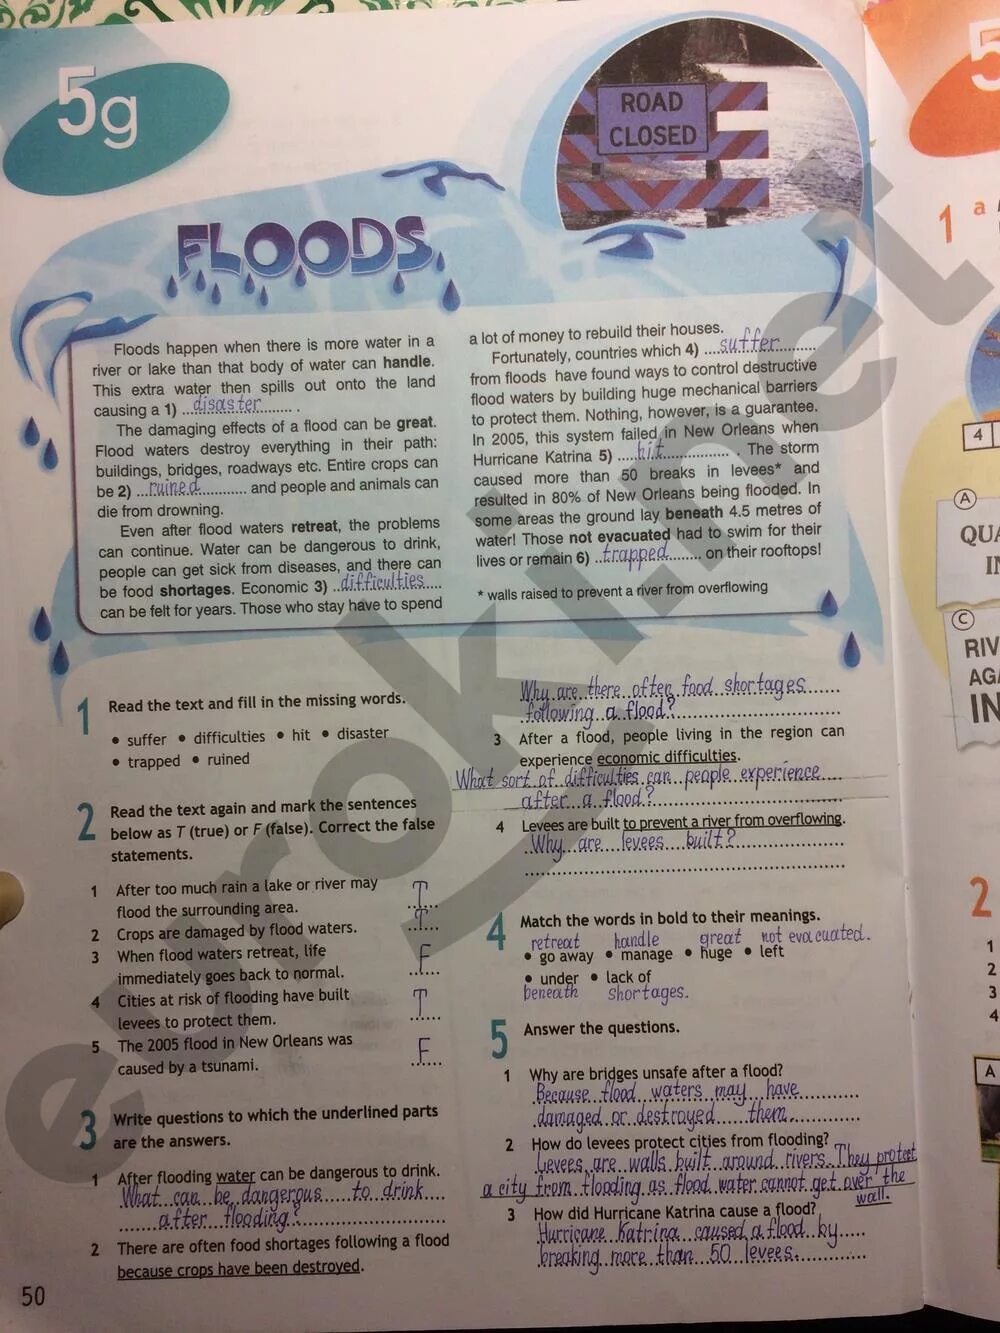 5g
ROAD
CLOSED
FLOODS
Floods happen when there is more water in a
river or lake than that body of water can handle.
This extra water then spills out onto the land
causing a 1) ...disaster....... .
The damaging effects of a flood can be great.
Flood waters destroy everything in their path:
buildings, bridges, roadways etc. Entire crops can
be 2) ...ruined............ and people and animals can
die from drowning.
Even after flood waters retreat, the problems
can continue. Water can be dangerous to drink,
people can get sick from diseases, and there can
be food shortages. Economic 3) ..difficulties....
can be felt for years. Those who stay have to spend
a lot of money to rebuild their houses.
Fortunately, countries which 4) ....suffer..........
from floods have found ways to control destructive
flood waters by building huge mechanical barriers
to protect them. Nothing, however, is a guarantee.
In 2005, this system failed in New Orleans when
Hurricane Katrina 5) .....hit................ . The storm
caused more than 50 breaks in levees* and
resulted in 80% of New Orleans being flooded. In
some areas the ground lay beneath 4.5 metres of
water! Those not evacuated had to swim for their
lives or remain 6) ..trapped......... on their rooftops!
* walls raised to prevent a river from overflowing
1 Read the text and fill in the missing words.
• suffer • difficulties • hit • disaster
• trapped • ruined
2 Read the text again and mark the sentences
below as T (true) or F (false). Correct the false
statements.
1 After too much rain a lake or river may
flood the surrounding area. T
2 Crops are damaged by flood waters. T
3 When flood waters retreat, life
immediately goes back to normal. F
4 Cities at risk of flooding have built
levees to protect them. T
5 The 2005 flood in New Orleans was
caused by a tsunami. F
3 Write questions to which the underlined parts
are the answers.
1 After flooding water can be dangerous to drink.
What can be dangerous to drink
after flooding?
2 There are often food shortages following a flood
because crops have been destroyed.
50
Why are there often food shortages
following a flood?
3 After a flood, people living in the region can
experience economic difficulties.
What sort of difficulties can people experience
after a flood?
4 Levees are built to prevent a river from overflowing.
Why are levees built?
4 Match the words in bold to their meanings.
retreat handle great not evacuated.
• go away • manage • huge • left
• under • lack of
beneath shortages.
5 Answer the questions.
1 Why are bridges unsafe after a flood?
Because flood waters may have
damaged or destroyed them.
2 How do levees protect cities from flooding?
Levees are walls built around rivers. They protect
a city from flooding as flood water cannot get over the
wall.
3 How did Hurricane Katrina cause a flood?
Hurricane Katrina caused a flood by
breaking more than 50 levees.
5
1 a
4
A
QUA
IN
C
RIV
AGA
IN
2
1
2
3
4
A
euroki.net